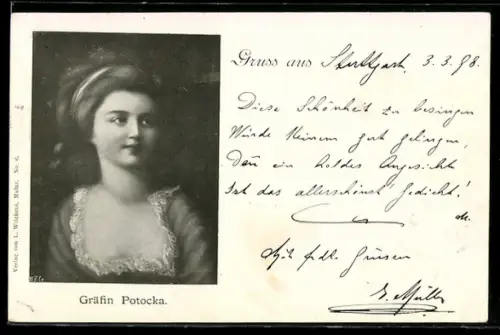 Gruss aus Stuttgart, 3.3.98.
Diese Schönheit zu besingen
Würde Keinem gut gelingen,
Denn ein holdes Angesicht
Ist das allerschönst' Gedicht!
Mit frdl. Grüssen
E. Müller
Gräfin Potocka.
Verlag von L. Wilckens, Mainz. No. 6.